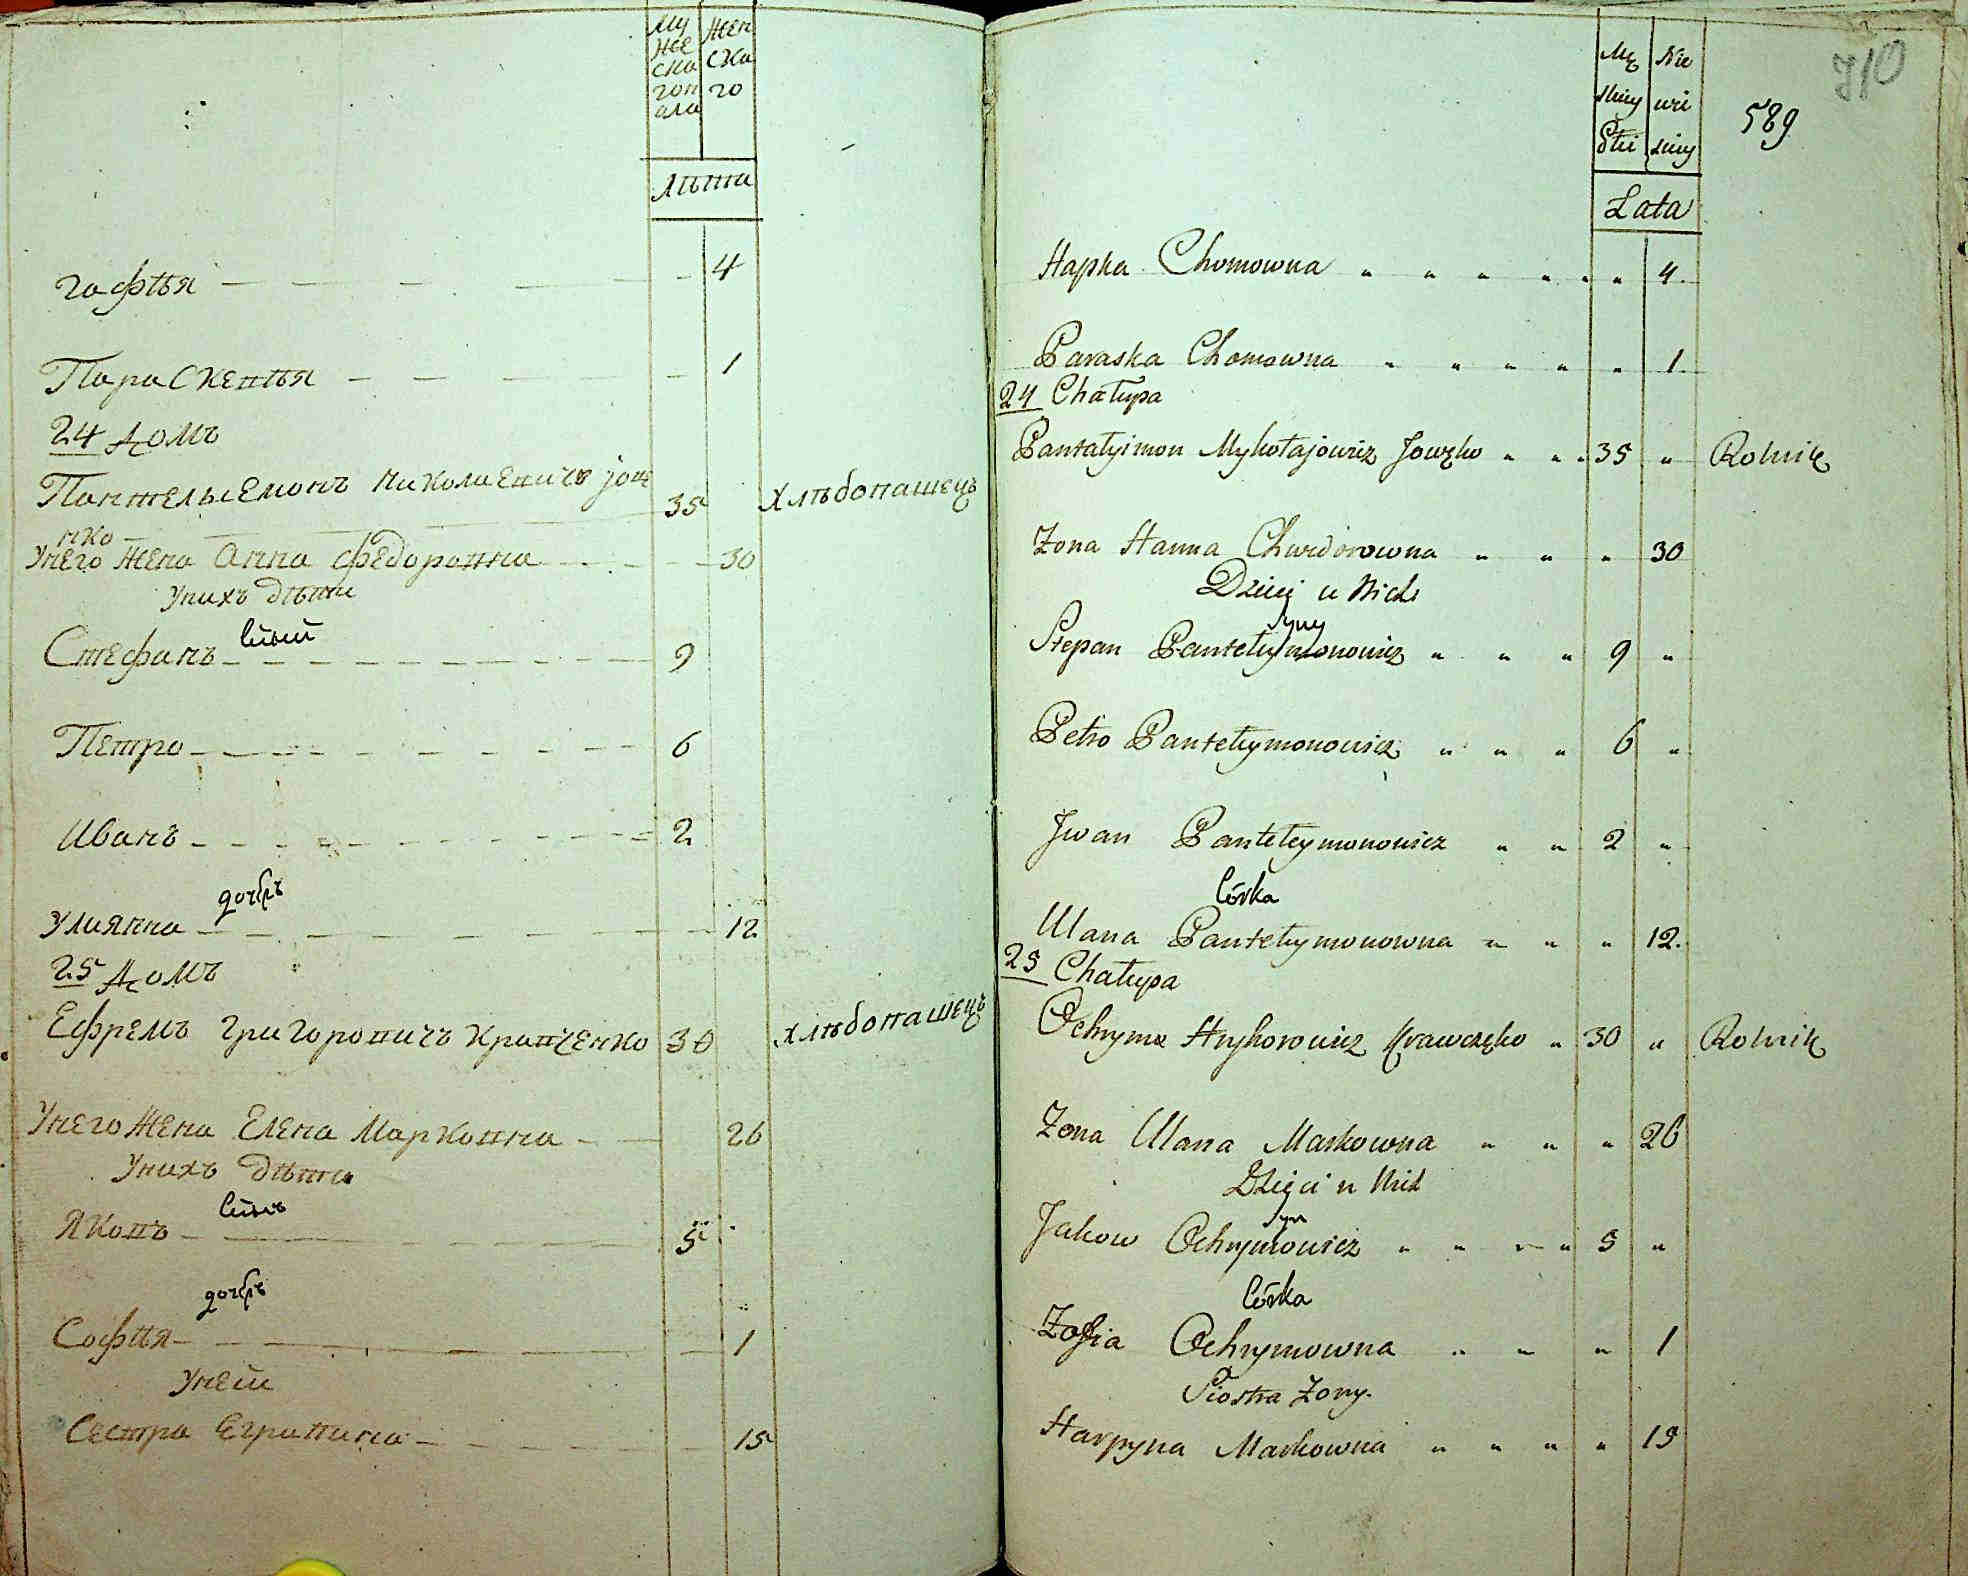 Му Жен
жe ска
ска го
гоп
ола
Лѣта
Гафия 4
Параскевия 1
24 Домъ
Пантелыемонъ Николаевичъ Јов
35 Хлѣбопашецъ
нко
Унего жена Анна Федоровна 30
Унихъ дѣти
Стефанъ 9
Петро 6
Иванъ 2
дочерь
Улиянна 12
25 Домъ
Ефремъ Григоровичъ Кравченко 30 Хлѣбопашецъ
Унего жена Елена Марковна 26
Унихъ дѣти
сынъ
Яковъ 5
дочерь
София 1
Уней
Сестра Еграпина 15
710
Mę Nie
skiey wie
Płci skiey
589
Lata
Hapka Chomowna " " " " " " 4.
Paraska Chomowna " " " " " 1.
24 Chałupa
Pantalyimon Mykołajowicz Jowęko " " " 35 " Rolnik
Zona Hanna Chwedorowna " " " 30
Dzieci u Nich
Syny
Stepan Pantelymonowicz " " " 9 "
Petro Pantelymonowicz " " " 6 "
Jwan Panteleymonowicz " " 2 "
Córka
Ulana Pantelymonowna " " " 12.
25 Chałupa
Ochrym Hryhorowicz Krawczęko " 30 " Rolnik
Zona Ulana Markowna " " " 26
Dzieci u Nich
Syn
Jakow Ochrymowicz " " " " 5 "
Córka
Zofia Ochrymowna " " " 1
Siostra Zony.
Harpyna Markowna " " " " 15